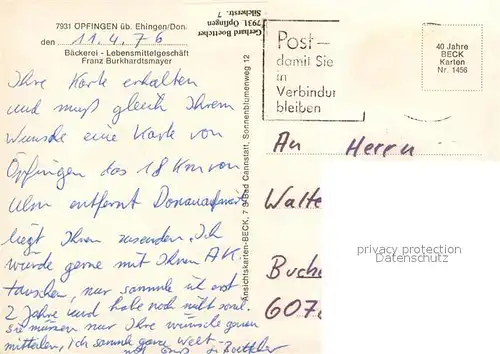 7931 OPFINGEN üb. Ehingen/Don.
den 11.4.76
Bäckerei - Lebensmittelgeschäft
Franz Burkhardtsmayer
Ihre Karte erhalten
und muß gleich Ihrem
Wunsche eine Karte von
Öpfingen das 18 Km von
Ulm entfernt Donauaufwärts
liegt Ihnen zusenden. Ich
würde gerne mit Ihnen AK.
tauschen, nur sammle ich erst
2 Jahre und habe noch nicht soviel.
Sie müssen nur Ihre Wünsche genau
mitteilen, ich sammle ganze Welt
Gruß G. Boettcher
Gerhard Boettcher
7931 Öpfingen
Silcherstr. 7
Ansichtskarten-BECK, 7 S-Bad Cannstatt, Sonnenblumenweg 12
Post-
damit Sie
in
Verbindun
bleiben
40 Jahre
BECK
Karten
Nr. 1456
An Herrn
Walte
Buche
607
privacy protection
Datenschutz